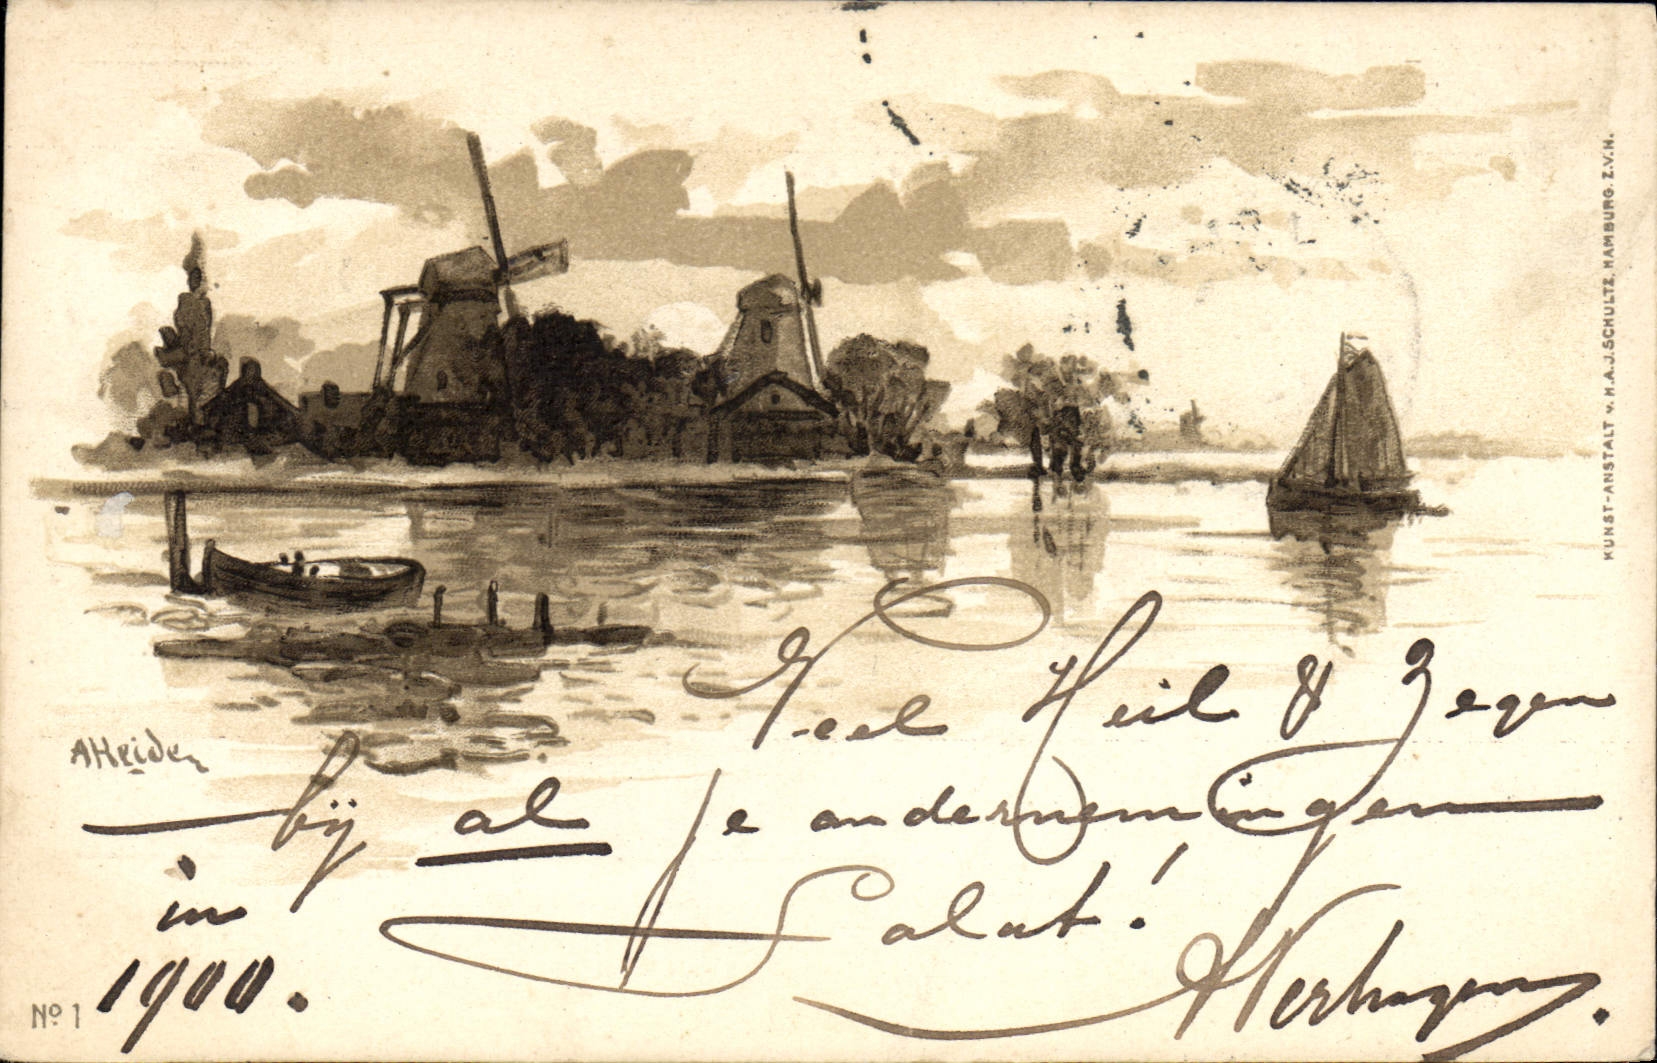 KUNST-ANSTALT v. H.A.J. SCHULTZ, HAMBURG. Z.V.H.
AHeiden
Veel Heil & Zegen
bij al je ondernemingen
in
1900.
Salut!
Verhagen.
No 1